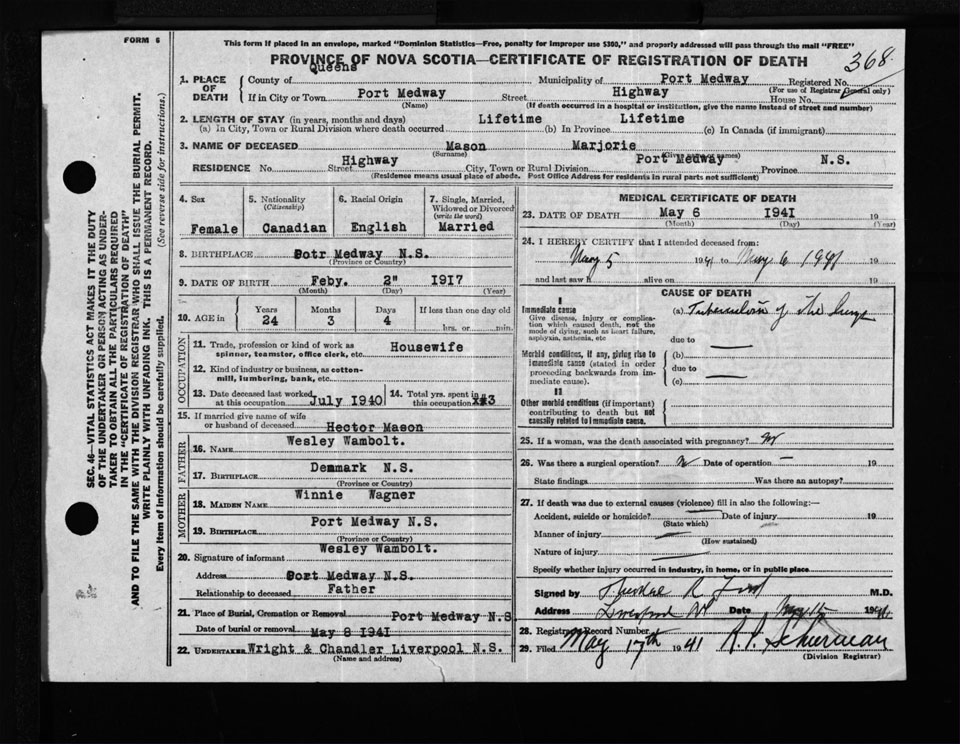 FORM 6
This form if placed in an envelope, marked "Dominion Statistics—Free, penalty for improper use $300," and properly addressed will pass through the mail "FREE"
PROVINCE OF NOVA SCOTIA—CERTIFICATE OF REGISTRATION OF DEATH
368
1. PLACE OF DEATH
County of Queens Municipality of Port Medway Registered No.
(For use of Registrar General only)
If in City or Town Port Medway Street Highway House No.
(Name) (If death occurred in a hospital or institution, give the name instead of street and number)
2. LENGTH OF STAY (in years, months and days)
(a) In City, Town or Rural Division where death occurred Lifetime (b) In Province Lifetime (c) In Canada (if immigrant)
3. NAME OF DECEASED Mason Marjorie
(Surname) (Given name or names)
RESIDENCE No. Highway Street City, Town or Rural Division Port Medway Province N.S.
(Residence means usual place of abode. Post Office Address for residents in rural parts not sufficient)
4. Sex
Female
5. Nationality
(Citizenship)
Canadian
6. Racial Origin
English
7. Single, Married, Widowed or Divorced
(write the word)
Married
8. BIRTHPLACE Potr Medway N.S.
(Province or Country)
9. DATE OF BIRTH Feby. 2" 1917
(Month) (Day) (Year)
10. AGE in
Years Months Days If less than one day old
24 3 4 hrs. or min.
OCCUPATION
11. Trade, profession or kind of work as spinner, teamster, office clerk, etc. Housewife
12. Kind of industry or business, as cotton-mill, lumbering, bank, etc.
13. Date deceased last worked at this occupation July 1940
14. Total yrs. spent in this occupation 3
15. If married give name of wife or husband of deceased Hector Mason
FATHER
16. NAME Wesley Wambolt.
17. BIRTHPLACE Denmark N.S.
(Province or Country)
MOTHER
18. MAIDEN NAME Winnie Wagner
19. BIRTHPLACE Port Medway N.S.
(Province or Country)
20. Signature of informant Wesley Wambolt.
Address Port Medway N.S.
Relationship to deceased Father
21. Place of Burial, Cremation or Removal Port Medway N.S
Date of burial or removal May 8 1941
22. UNDERTAKER Wright & Chandler Liverpool N.S.
(Name and address)
MEDICAL CERTIFICATE OF DEATH
23. DATE OF DEATH May 6 1941 19
(Month) (Day) (Year)
24. I HEREBY CERTIFY that I attended deceased from:
May 5 1941 to May 6 1941 19
and last saw h alive on 19
CAUSE OF DEATH
I
Immediate cause
Give disease, injury or complication which caused death, not the mode of dying, such as heart failure, asphyxia, asthenia, etc
(a) Tuberculosis of the lungs
due to
Morbid conditions, if any, giving rise to immediate cause (stated in order proceeding backwards from immediate cause).
(b)
due to
(c)
II
Other morbid conditions (if important) contributing to death but not causally related to immediate cause.
25. If a woman, was the death associated with pregnancy? no
26. Was there a surgical operation? Date of operation — 19
State findings Was there an autopsy?
27. If death was due to external causes (violence) fill in also the following:—
Accident, suicide or homicide? Date of injury 19
(State which)
Manner of injury
(How sustained)
Nature of injury
Specify whether injury occurred in industry, in home, or in public place
Signed by M.D.
Address Liverpool NS Date May 15 1941
28. Registrar's Record Number
29. Filed May 17th 1941
(Division Registrar)
SEC. 46—VITAL STATISTICS ACT MAKES IT THE DUTY OF THE UNDERTAKER OR PERSON ACTING AS UNDERTAKER TO OBTAIN ALL THE PARTICULARS REQUIRED IN THE "CERTIFICATE OF REGISTRATION OF DEATH"
AND TO FILE THE SAME WITH THE DIVISION REGISTRAR WHO SHALL ISSUE THE BURIAL PERMIT.
WRITE PLAINLY WITH UNFADING INK. THIS IS A PERMANENT RECORD.
Every item of information should be carefully supplied. (See reverse side for instructions.)